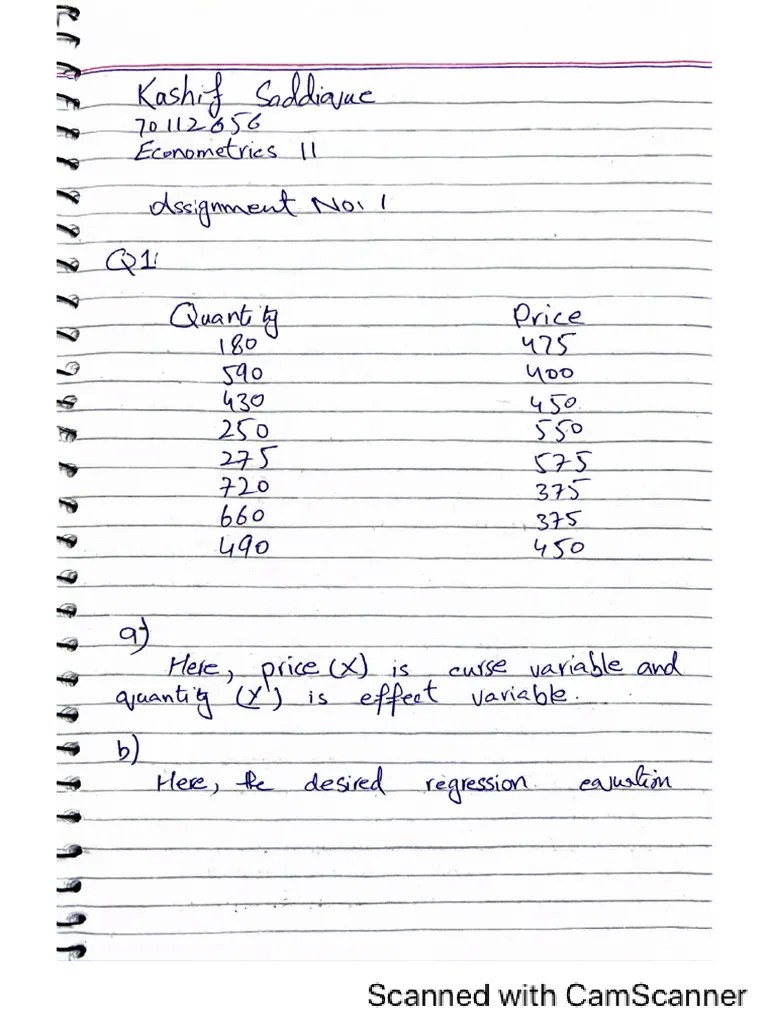 Kashif Saddique
70112656
Econometrics II
Assignment No: 1
Q1:
Quantity Price
180 475
590 400
430 450
250 550
275 575
720 375
660 375
490 450
a)
Here, price (X) is curse variable and
quantity (Y) is effect variable.
b)
Here, the desired regression equation
Scanned with CamScanner